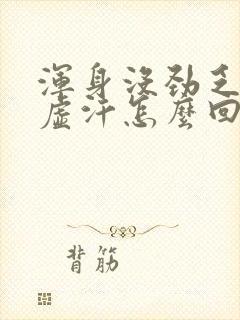 渾身沒勁乏
虛汗怎麼回
背筋